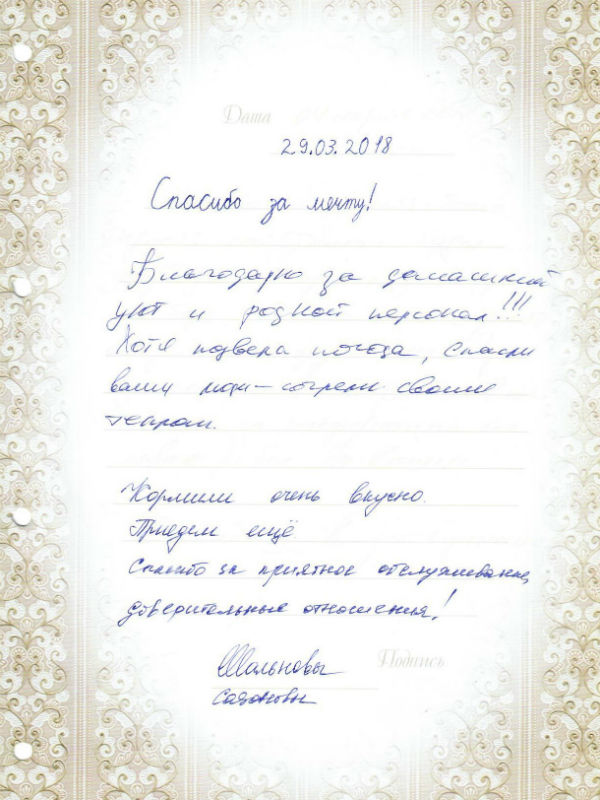 Дата
29.03.2018
Спасибо за мечту!
Благодарю за домашний
уют и родной персонал!!!
Хотя подвела погода, спасли
ваши люди – согрели своим
теплом.
Кормили очень вкусно.
Приедем ещё
Спасибо за приятное обслуживание,
доверительные отношения!
Шальновы
Подпись
Сазоновы